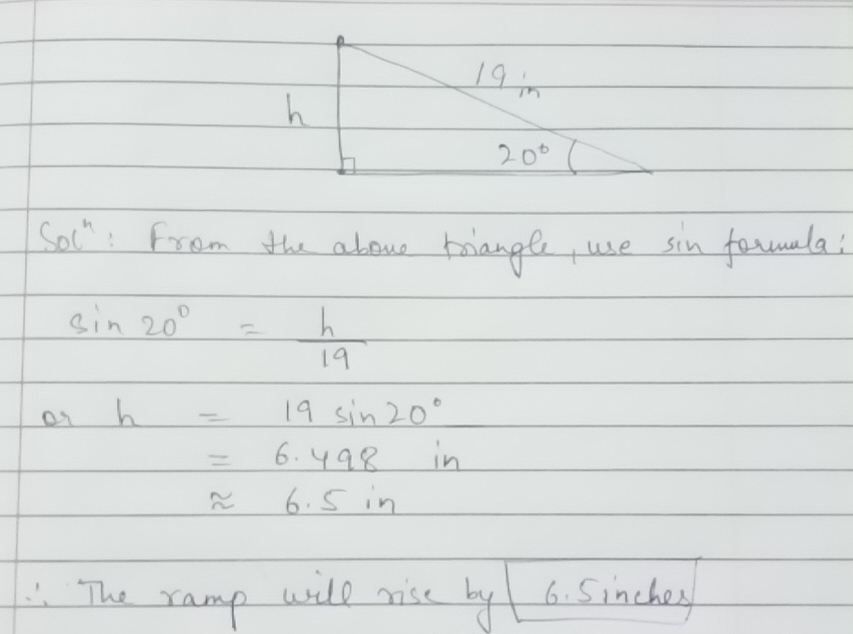 19 in
h
20°
Solⁿ: From the above triangle, use sin formula:
sin 20° = h
19
or h = 19 sin 20°
= 6.498 in
≈ 6.5 in
∴ The ramp will rise by 6.5 inches